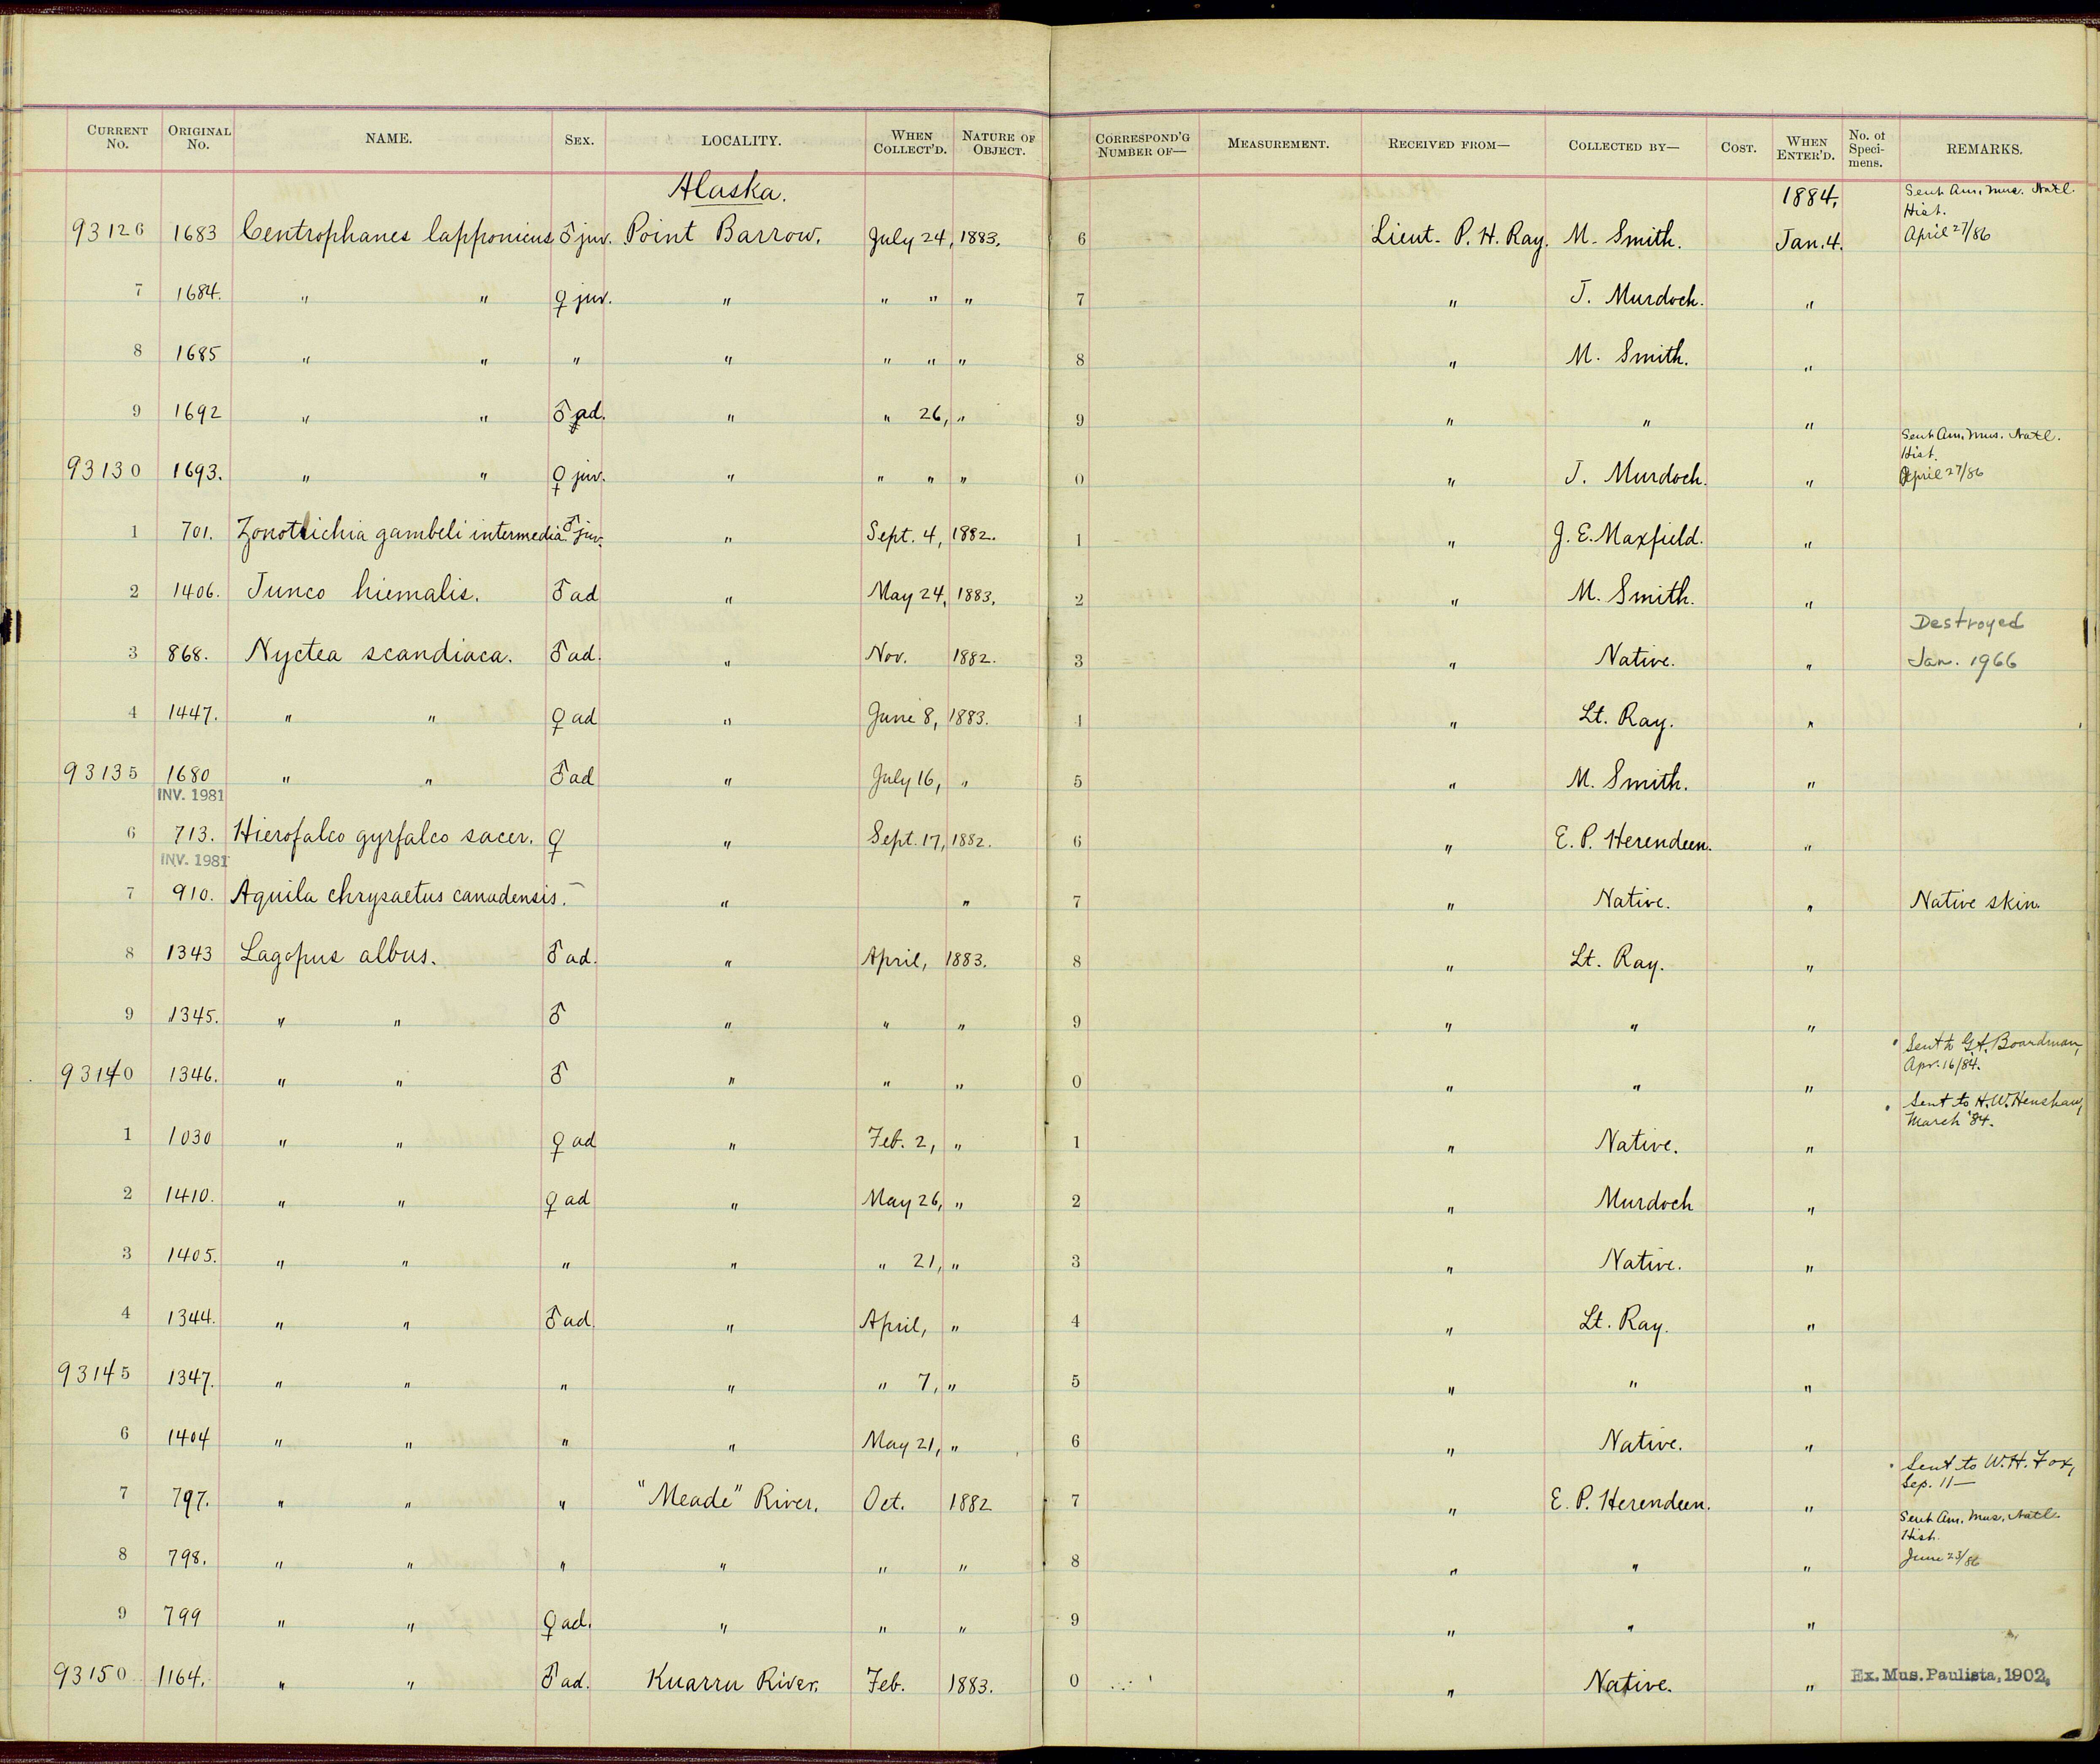 CURRENT No. ORIGINAL No. NAME. SEX. LOCALITY. WHEN COLLECT'D. NATURE OF OBJECT. CORRESPOND'G NUMBER OF— MEASUREMENT. RECEIVED FROM— COLLECTED BY— COST. WHEN ENTER'D. No. of Speci-mens. REMARKS.
Alaska. 1884, Sent Am. Mus. Natl. Hist.
93126 1683 Centrophanes lapponicus ♂ juv. Point Barrow. July 24, 1883. 6 Lieut. P. H. Ray. M. Smith. Jan. 4. April 27/86
7 1684. " " ♀ juv. " " " " 7 " J. Murdoch. "
8 1685 " " " " " " " 8 " M. Smith. "
9 1692 " " ♂ ad. " " 26, " 9 " " "
93130 1693. " " ♀ juv. " " " " 0 " J. Murdoch. " Sent Am. Mus. Natl. Hist. April 27/86
1 701. Zonotrichia gambeli intermedia ♂ juv. " Sept. 4, 1882. 1 " J. E. Maxfield. "
2 1406. Junco hiemalis. ♂ ad " May 24, 1883, 2 " M. Smith. "
3 868. Nyctea scandiaca. ♂ ad. " Nov. 1882. 3 " Native. " Destroyed Jan. 1966
4 1447. " " ♀ ad " June 8, 1883. 4 " Lt. Ray. "
93135 1680 " " ♂ ad " July 16, " 5 " M. Smith. "
INV. 1981
6 713. Hierofalco gyrfalco sacer. ♀ " Sept. 17, 1882. 6 " E. P. Herendeen. "
INV. 1981
7 910. Aquila chrysaetus canadensis. — " " 7 " Native. " Native skin.
8 1343 Lagopus albus. ♂ ad. " April, 1883. 8 " Lt. Ray. "
9 1345. " " ♂ " " " 9 " " "
93140 1346. " " ♂ " " " 0 " " " Sent to G. A. Boardman, Apr. 16/84.
1 1030 " " ♀ ad " Feb. 2, " 1 " Native. " Sent to H. W. Henshaw, March '84.
2 1410. " " ♀ ad " May 26, " 2 " Murdoch "
3 1405. " " " " " 21, " 3 " Native. "
4 1344. " " ♂ ad. " April, " 4 " Lt. Ray. "
93145 1347. " " " " " 7, " 5 " " "
6 1404 " " " " May 21, " 6 " Native. "
7 797. " " " "Meade" River. Oct. 1882 7 " E. P. Herendeen. " Sent to W. H. Fox, Sep. 11—
8 798. " " " " " " 8 " " " Sent Am. Mus. Natl. Hist. June 23/86
9 799 " " ♀ ad. " " " 9 " " "
93150 1164. " " ♂ ad. Kuarru River. Feb. 1883. 0 " Native. " Ex. Mus. Paulista, 1902.